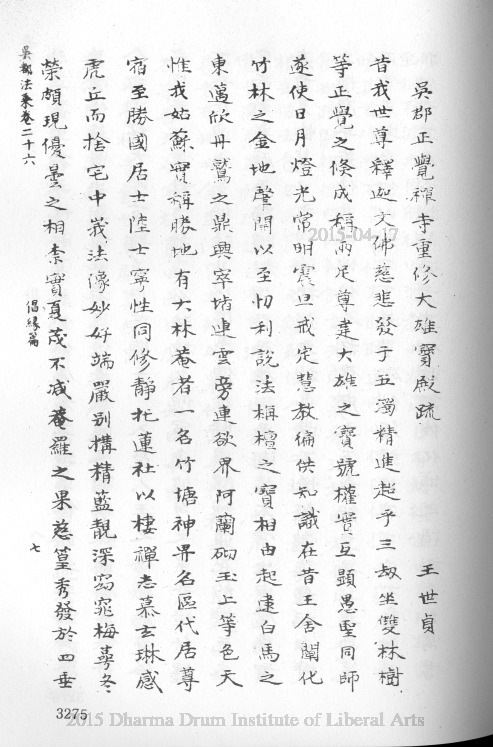 吳郡正覺禪寺重修大雄寶殿疏
王世貞
昔我世尊釋迦文佛慈悲發于五濁精進超乎三劫坐雙林樹
等正覺之倏成稱兩足尊建大雄之寶號權實互顯愚聖同師
遂使日月燈光常明震旦戒定慧教徧供知識在昔王舍闡化
竹林之金地聲聞以至忉利說法栴檀之寶相由起逮白馬之
東邁欣丹鷲之鼎興窣堵連雲旁連欲界阿蘭砌玉上等色天
惟我姑蘇實稱勝地有大林菴者一名竹塘神界名區代居尊
宿至勝國居士陸士寧性同修靜托蓮社以棲禪志慕玄琳感
虎丘而捨宅中峩法像妙好端嚴别構精藍靚深窈窕梅蕚冬
榮頗現優曇之相柰實夏茂不减菴羅之果慈篁秀發於四垂
吳都法乘卷二十六
倡緣篇
七
3275
2015-04-17
2015 Dharma Drum Institute of Liberal Arts